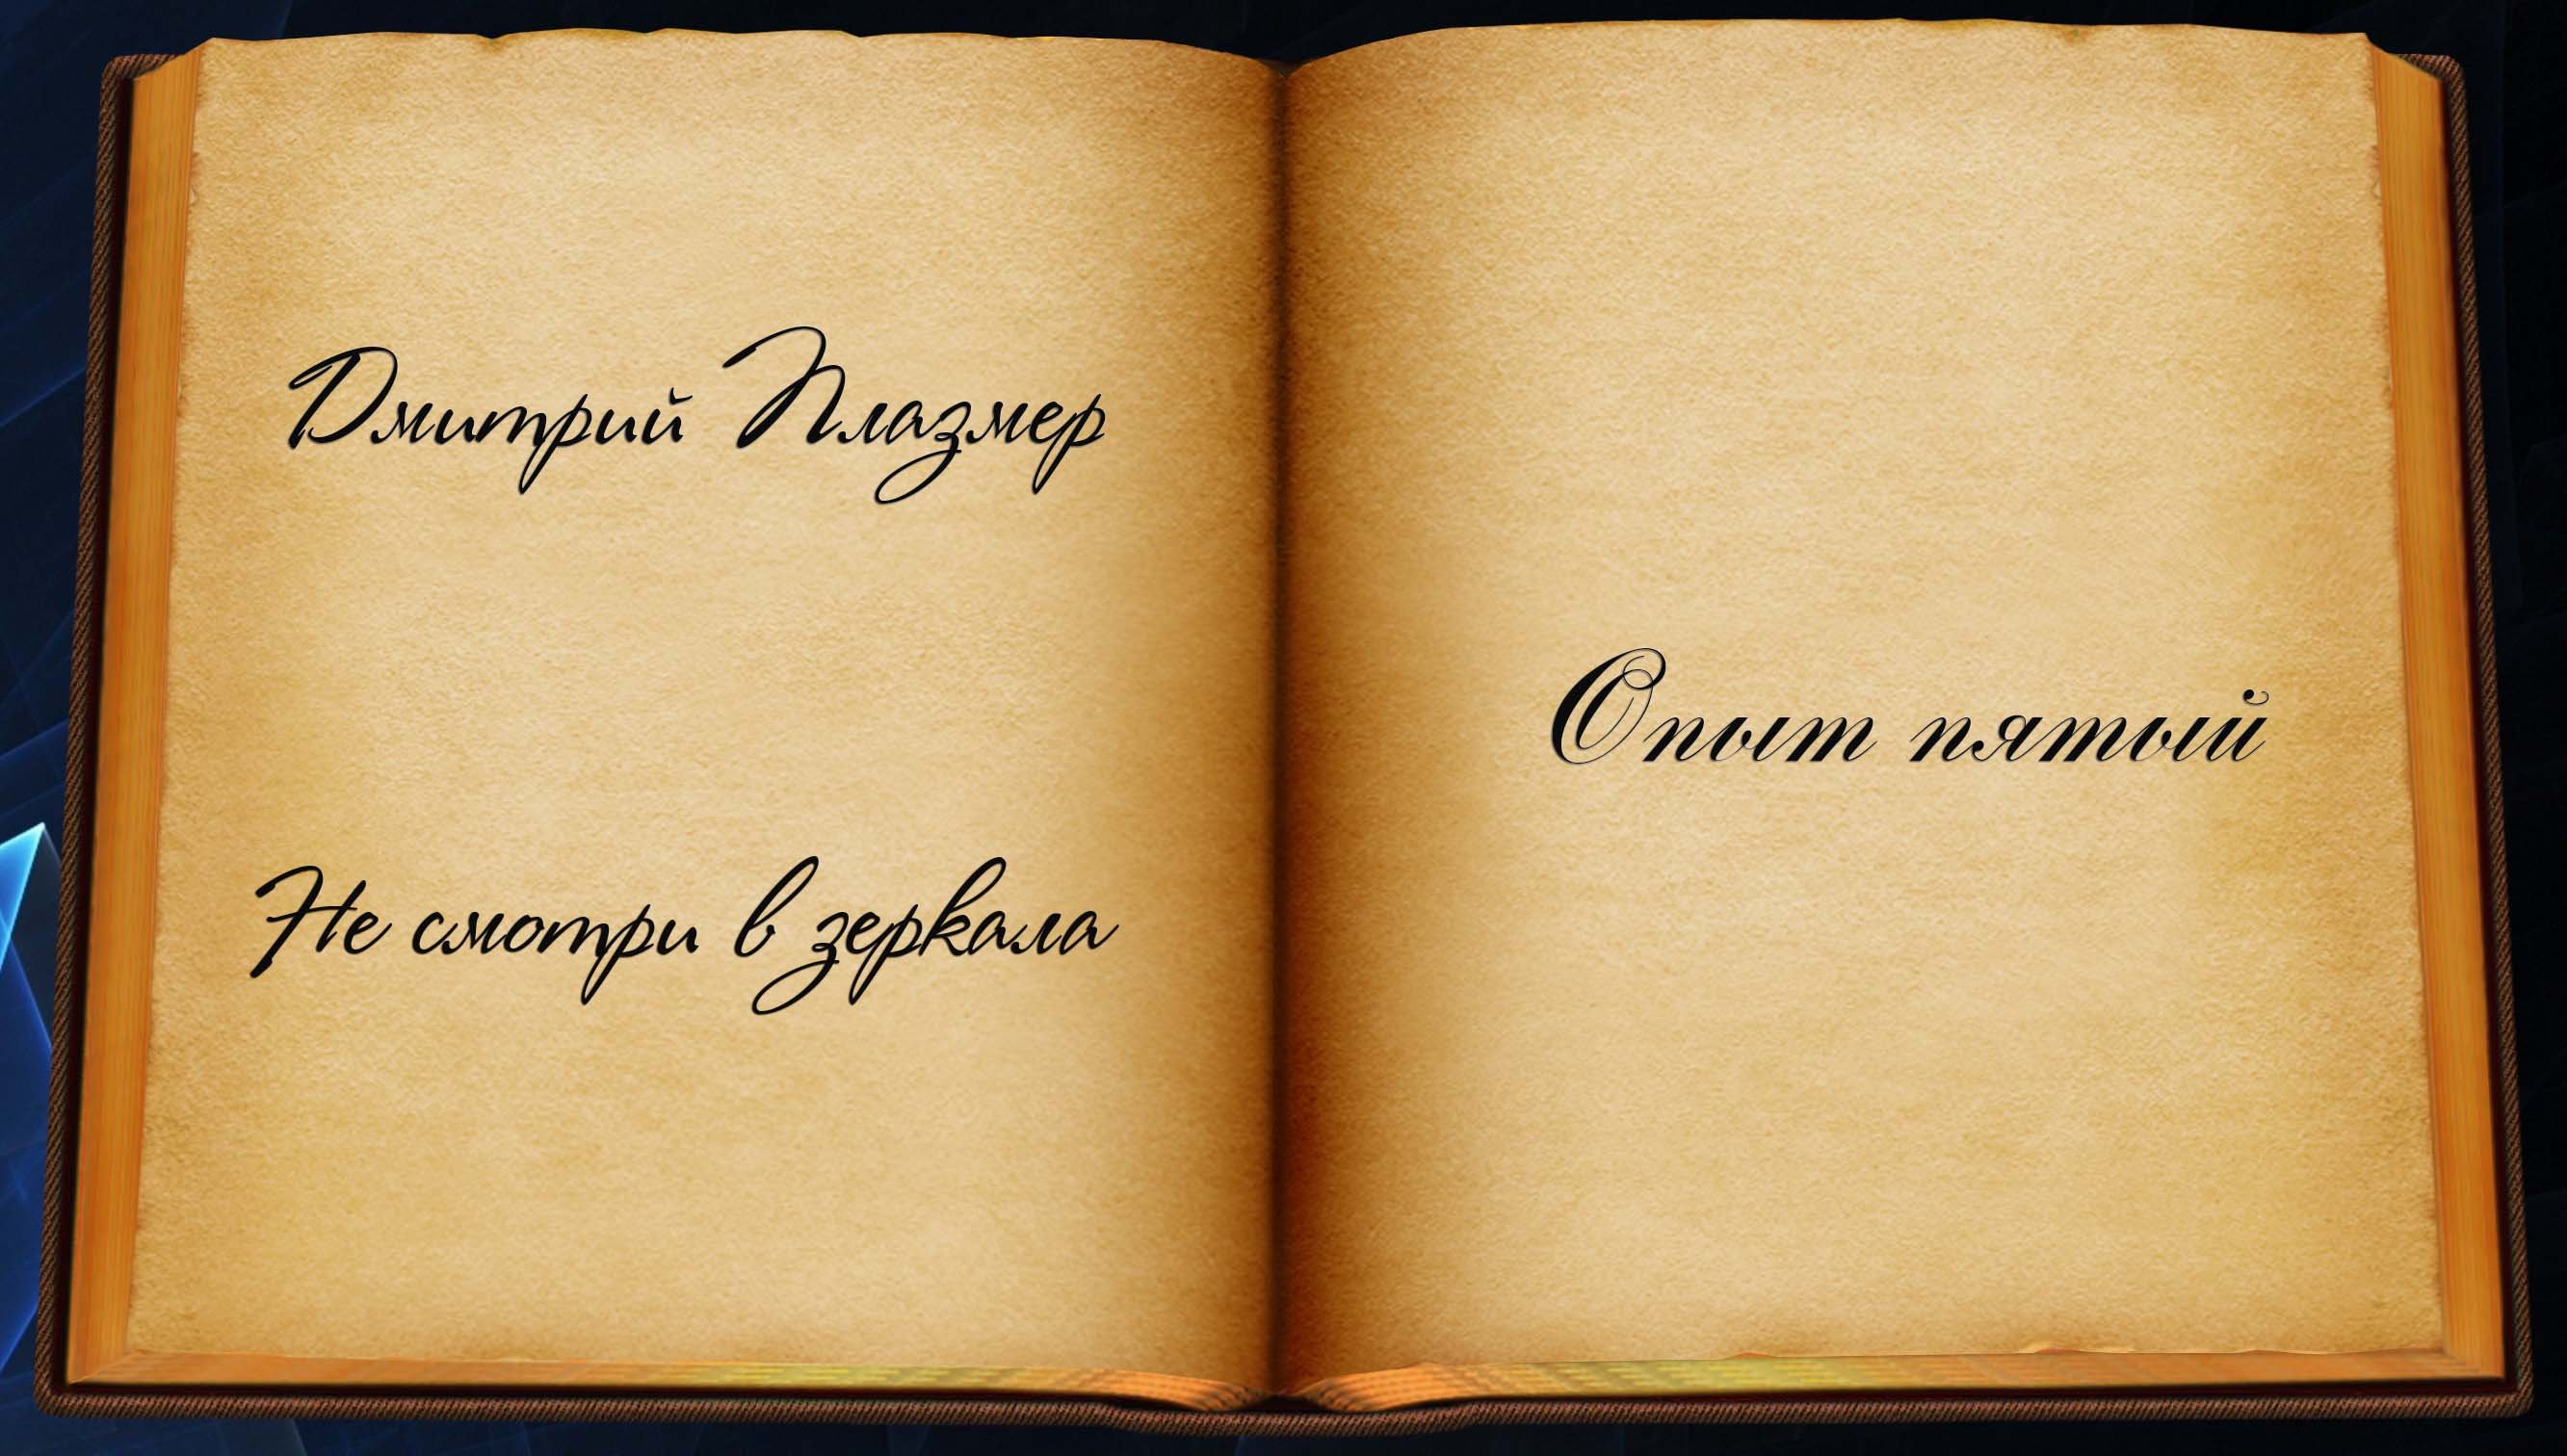 Дмитрий Плазмер
Не смотри в зеркала
Опыт пятый